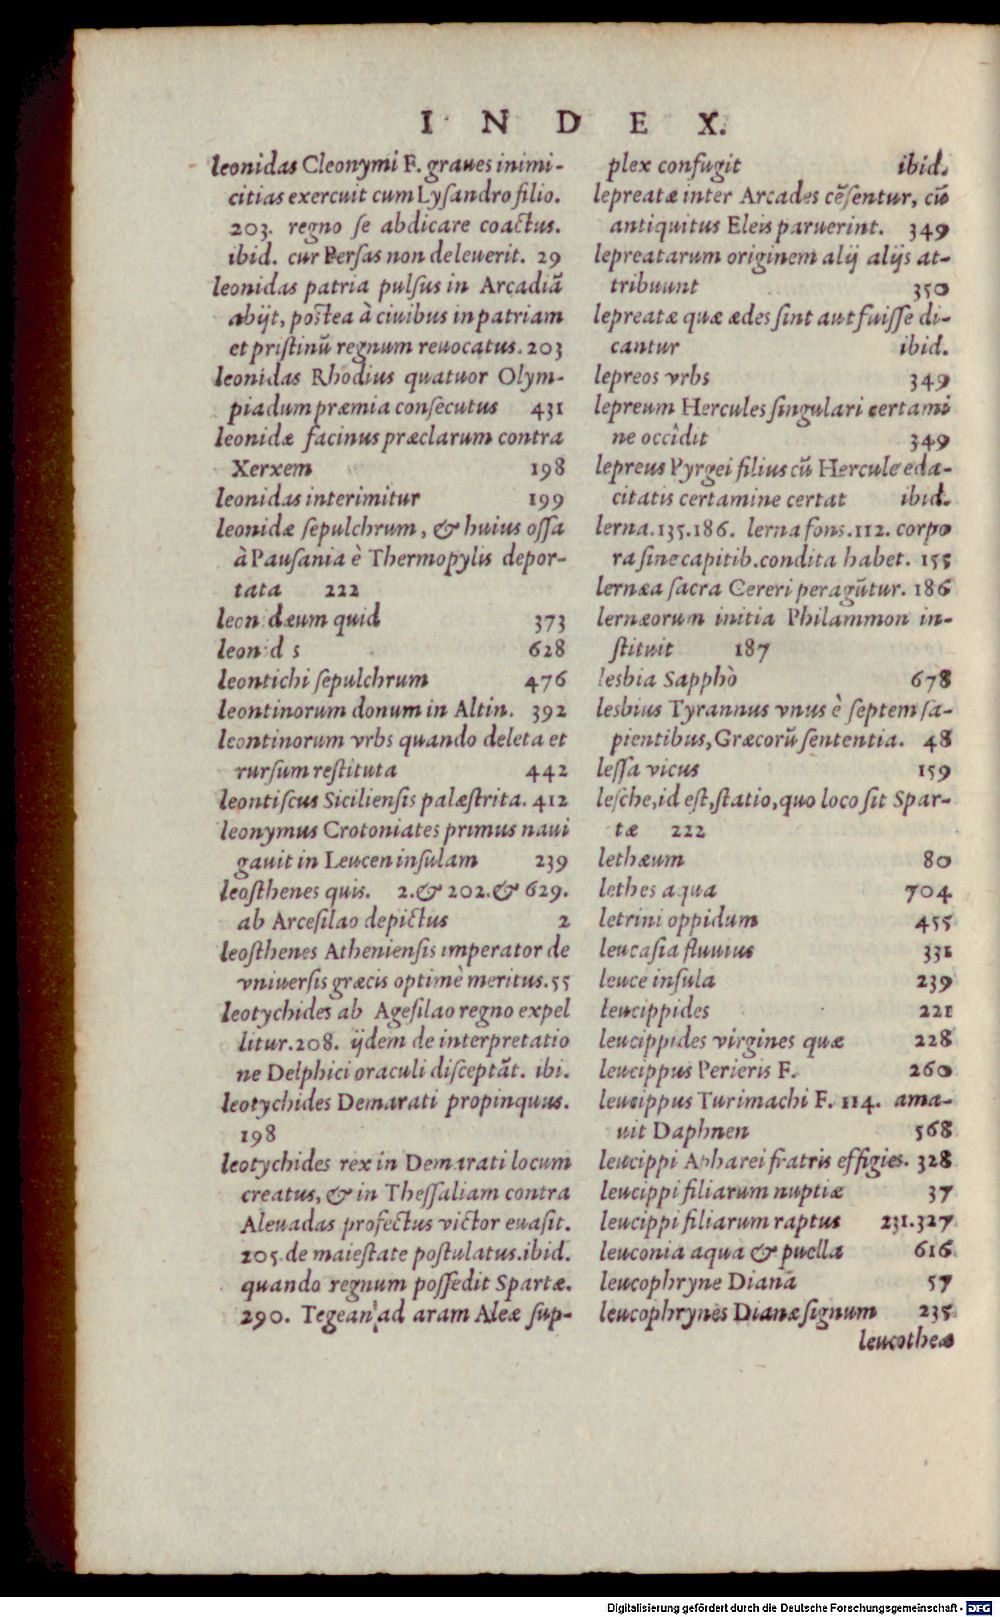 INDEX.
leonidas Cleonymi F. graues inimi-
citias exercuit cum Lysandro filio.
203. regno se abdicare coactus.
ibid. cur Persas non deleuerit. 29
leonidas patria pulsus in Arcadiã
abijt, postea à ciuibus in patriam
et pristinũ regnum reuocatus. 203
leonidas Rhodius quatuor Olym-
piadum præmia consecutus 431
leonidæ facinus præclarum contra
Xerxem 198
leonidas interimitur 199
leonidæ sepulchrum, & huius ossa
à Pausania è Thermopylis depor-
tata 222
leon:dæum quid 373
leon:d s 628
leontichi sepulchrum 476
leontinorum donum in Altin. 392
leontinorum vrbs quando deleta et
rursum restituta 442
leontiscus Siciliensis palæstrita. 412
leonymus Crotoniates primus naui
gauit in Leucen insulam 239
leosthenes quis. 2. & 202. & 629.
ab Arcesilao depictus 2
leosthenes Atheniensis imperator de
vniuersis græcis optimè meritus. 55
leotychides ab Agesilao regno expel
litur. 208. ijdem de interpretatio
ne Delphici oraculi disceptãt. ibi.
leotychides Demarati propinquus.
198
leotychides rex in Demarati locum
creatus, & in Thessaliam contra
Aleuadas profectus victor euasit.
205. de maiestate postulatus. ibid.
quando regnum possedit Spartæ.
290. Tegean ad aram Aleæ sup-
plex confugit ibid.
lepreatæ inter Arcades cẽsentur, cũ
antiquitus Eleis paruerint. 349
lepreatarum originem alij alijs at-
tribuunt 350
lepreatæ quæ ædes sint aut fuisse di-
cantur ibid.
lepreos vrbs 349
lepreum Hercules singulari certami
ne occîdit 349
lepreus Pyrgei filius cũ Hercule eda-
citatis certamine certat ibid.
lerna. 135. 186. lerna fons. 112. corpo
ra sine capitib. condita habet. 155
lernæa sacra Cereri peragũtur. 186
lernæorum initia Philammon in-
stituit 187
lesbia Sapphò 678
lesbius Tyrannus vnus è septem sa-
pientibus, Græcorũ sententia. 48
lessa vicus 159
lesche, id est, statio, quo loco sit Spar-
tæ 222
lethæum 80
lethes aqua 704
letrini oppidum 455
leucasia fluuius 331
leuce insula 239
leucippides 221
leucippides virgines quæ 228
leucippus Perieris F. 260
leucippus Turimachi F. 114. ama-
uit Daphnen 568
leucippi Apharei fratris effigies. 328
leucippi filiarum nuptiæ 37
leucippi filiarum raptus 231. 327
leuconia aqua & puella 616
leucophryne Diana 57
leucophrynes Dianæ signum 235
leucotheæ
Digitalisierung gefördert durch die Deutsche Forschungsgemeinschaft - DFG